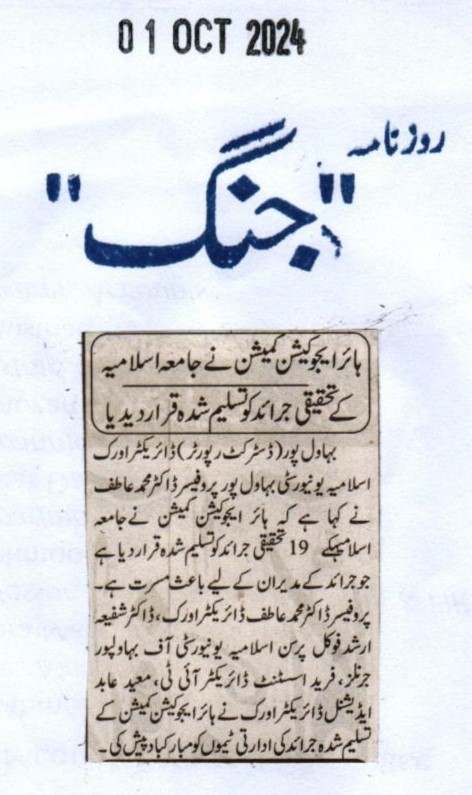 01 OCT 2024
روزنامہ
"جنگ"
ہائر ایجوکیشن کمیشن نے جامعہ اسلامیہ
کے تحقیقی جرائد کو تسلیم شدہ قرار دیدیا
بہاول پور (ڈسٹرکٹ رپورٹر) ڈائریکٹر اورک
اسلامیہ یونیورسٹی بہاول پور پروفیسر ڈاکٹر محمد عاطف
نے کہا ہے کہ ہائر ایجوکیشن کمیشن نے جامعہ
اسلامیہکے 19 تحقیقی جرائد کو تسلیم شدہ قرار دیا ہے
جو جرائد کے مدیران کے لیے باعث مسرت ہے۔
پروفیسر ڈاکٹر محمد عاطف ڈائریکٹر اورک، ڈاکٹر شفیعہ
ارشد فوکل پرسن اسلامیہ یونیورسٹی آف بہاولپور
جرنلز، فرید اسسٹنٹ ڈائریکٹر آئی ٹی، معید عابد
ایڈیشنل ڈائریکٹر اورک نے ہائر ایجوکیشن کمیشن کے
تسلیم شدہ جرائد کی ادارتی ٹیموں کو مبارکباد پیش کی۔